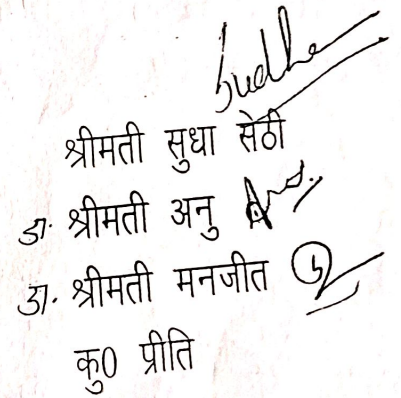 Sudha
श्रीमती सुधा सेठी
डा. श्रीमती अनु Anu.
डा. श्रीमती मनजीत
कु0 प्रीति